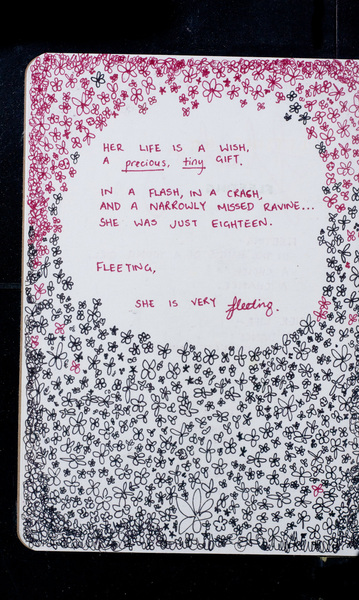 HER LIFE IS A WISH,
A precious, tiny GIFT.
IN A FLASH, IN A CRASH,
AND A NARROWLY MISSED RAVINE...
SHE WAS JUST EIGHTEEN.
FLEETING,
SHE IS VERY fleeting.